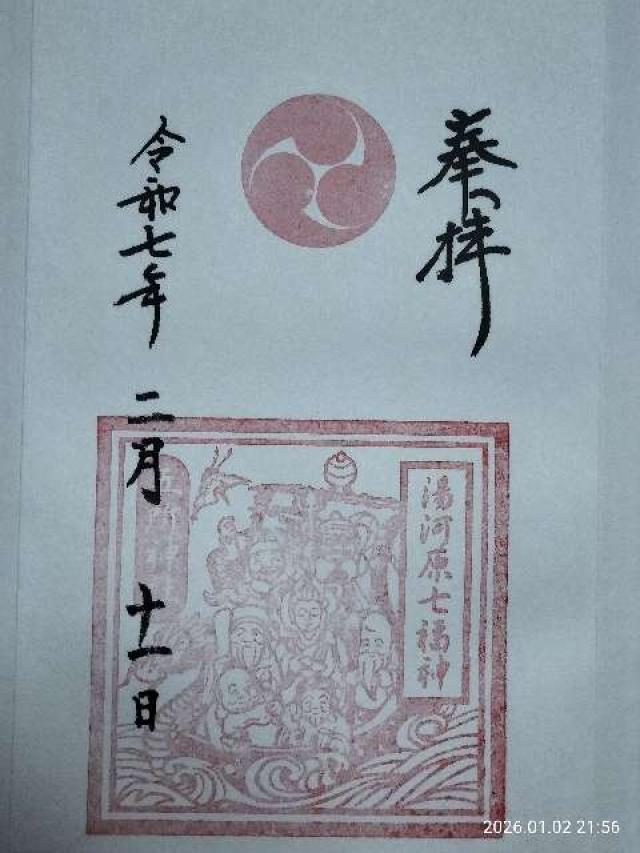 奉拝
湯河原七福神
令和七年 二月 十一日
2026.01.02 21:56